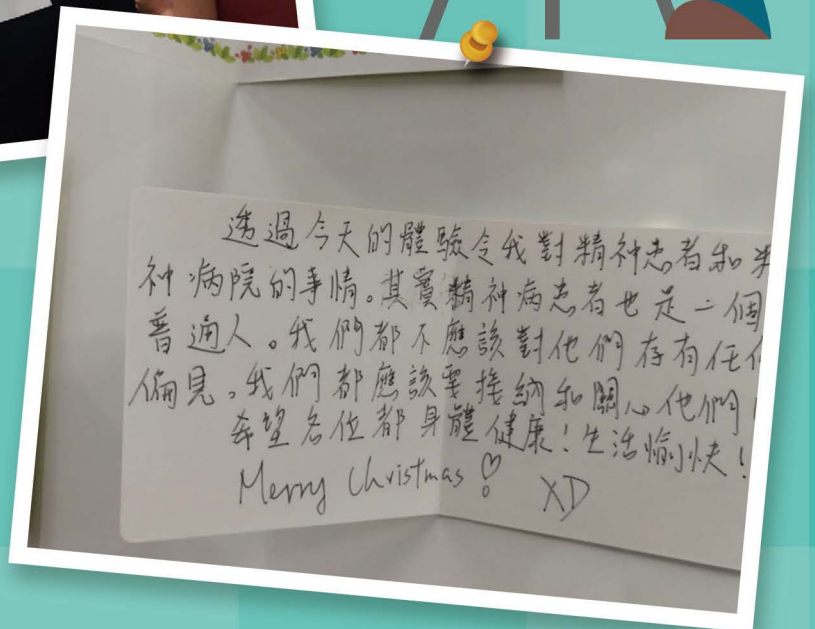 透過今天的體驗令我對精神患者和精
神病院的事情。其實精神病患者也是一個
普通人。我們都不應該對他們存有任何
偏見。我們都應該要接納和關心他們
希望各位都身體健康！生活愉快！
Merry Christmas!
XD